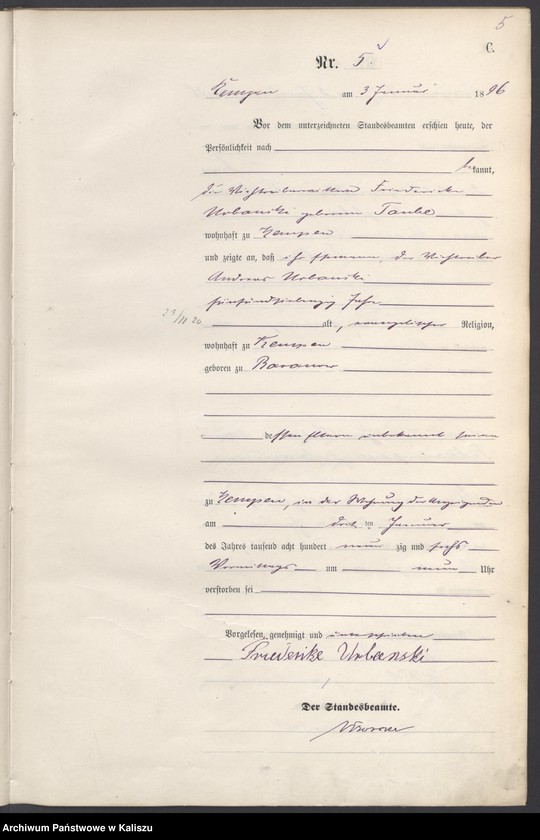 5
C.
Nr. 5.
Kempen am 3 Januar 1896
Vor dem unterzeichneten Standesbeamten erschien heute, der
Persönlichkeit nach
bekannt,
die
Friederike
Urbanski geborene Taube
wohnhaft zu Kempen
und zeigte an, daß ihr Ehemann, der
Andreas Urbanski
fünfundsiebenzig Jahre
23/11 20
alt, evangelischer Religion,
wohnhaft zu Kempen
geboren zu Baranow
dessen Eltern unbekannt seien
zu Kempen, in der Wohnung der Anzeigenden
am drei ten Januar
des Jahres tausend acht hundert neun zig und sechs
Vormittags um neun Uhr
verstorben sei
Vorgelesen, genehmigt und unterschrieben
Friederike Urbanski
Der Standesbeamte.
Archiwum Państwowe w Kaliszu